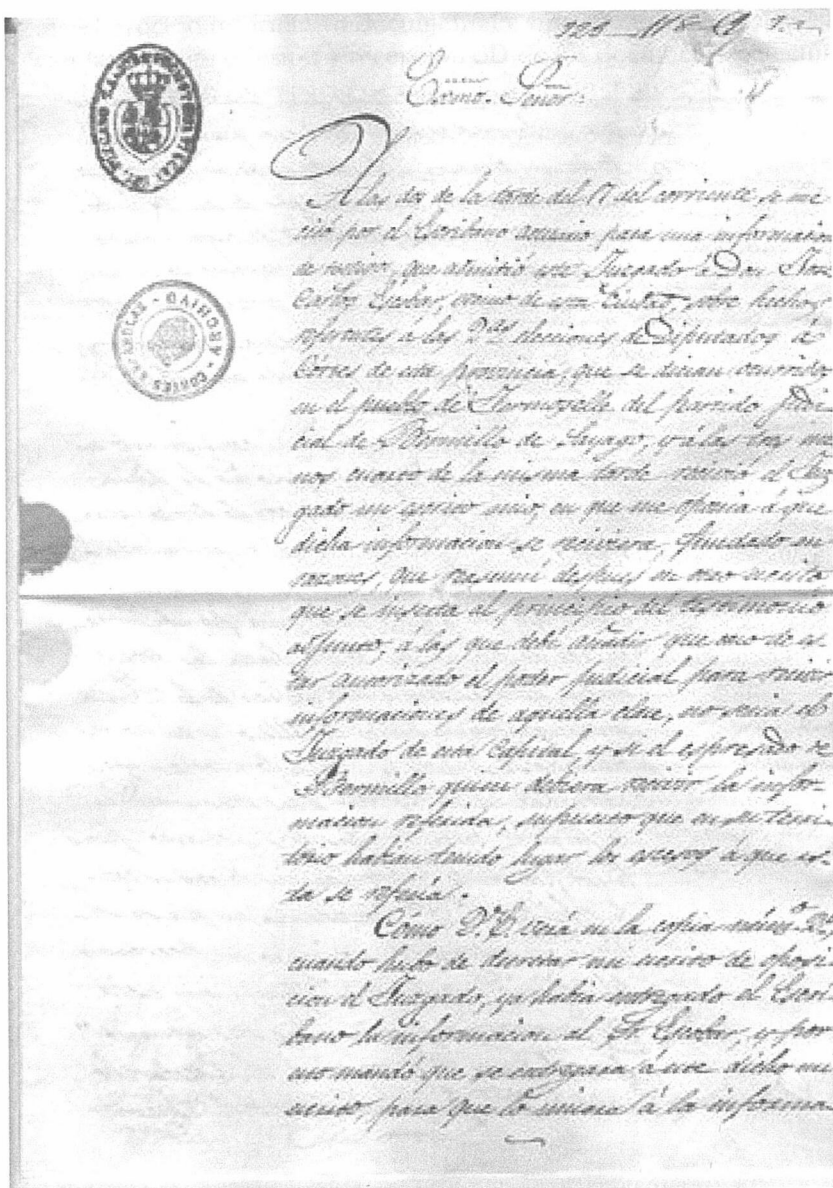 Excmo. Señor:
A las dos de la tarde del 17 del corriente, se me
citó por el Escribano actuario para una informacion
de testigos, que admitió este Juzgado á Don José
Carlos Escobar, vecino de esta Ciudad, sobre hechos
referentes á las 2.as elecciones de Diputados á
Córtes de esta provincia, que se decian ocurridos
en el pueblo de Fermoselle del partido judi
cial de Bermillo de Sayago, y á las tres me
nos cuarto de la misma tarde recivió el Juz
gado un escrito mio, en que me oponia á que
dicha informacion se reciviera, fundado en
razones, que resumí despues en otro escrito
que se inserta al principio del testimonio
adjunto, á las que debí añadir que caso de es-
tar autorizado el poder judicial para recivir
informaciones de aquella clase, no seria el
Juzgado de esta Capital y si el espresado de
Bermillo quien debiera recivir la infor-
macion referida, supuesto que en su terri
torio habian tenido lugar los escesos á que es-
ta se referia.
Cómo V. E. verá en la copia núm.o 2.o,
cuando hubo de decretar mi escrito de oposi
cion el Juzgado, ya habia entregado el Escri
bano la informacion al Sr. Escobar, y por
eso mandó que se entregara á este dicho mi
escrito, para que lo uniera á la informa
ARCHIVO - CORTES ESPAÑOLAS -